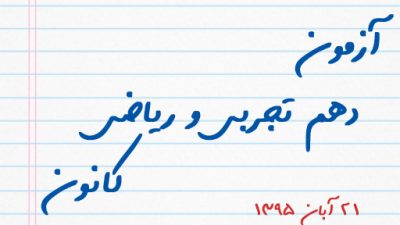 آزمون
دهم تجربی و ریاضی
کانون
۲۱ آبان ۱۳۹۵